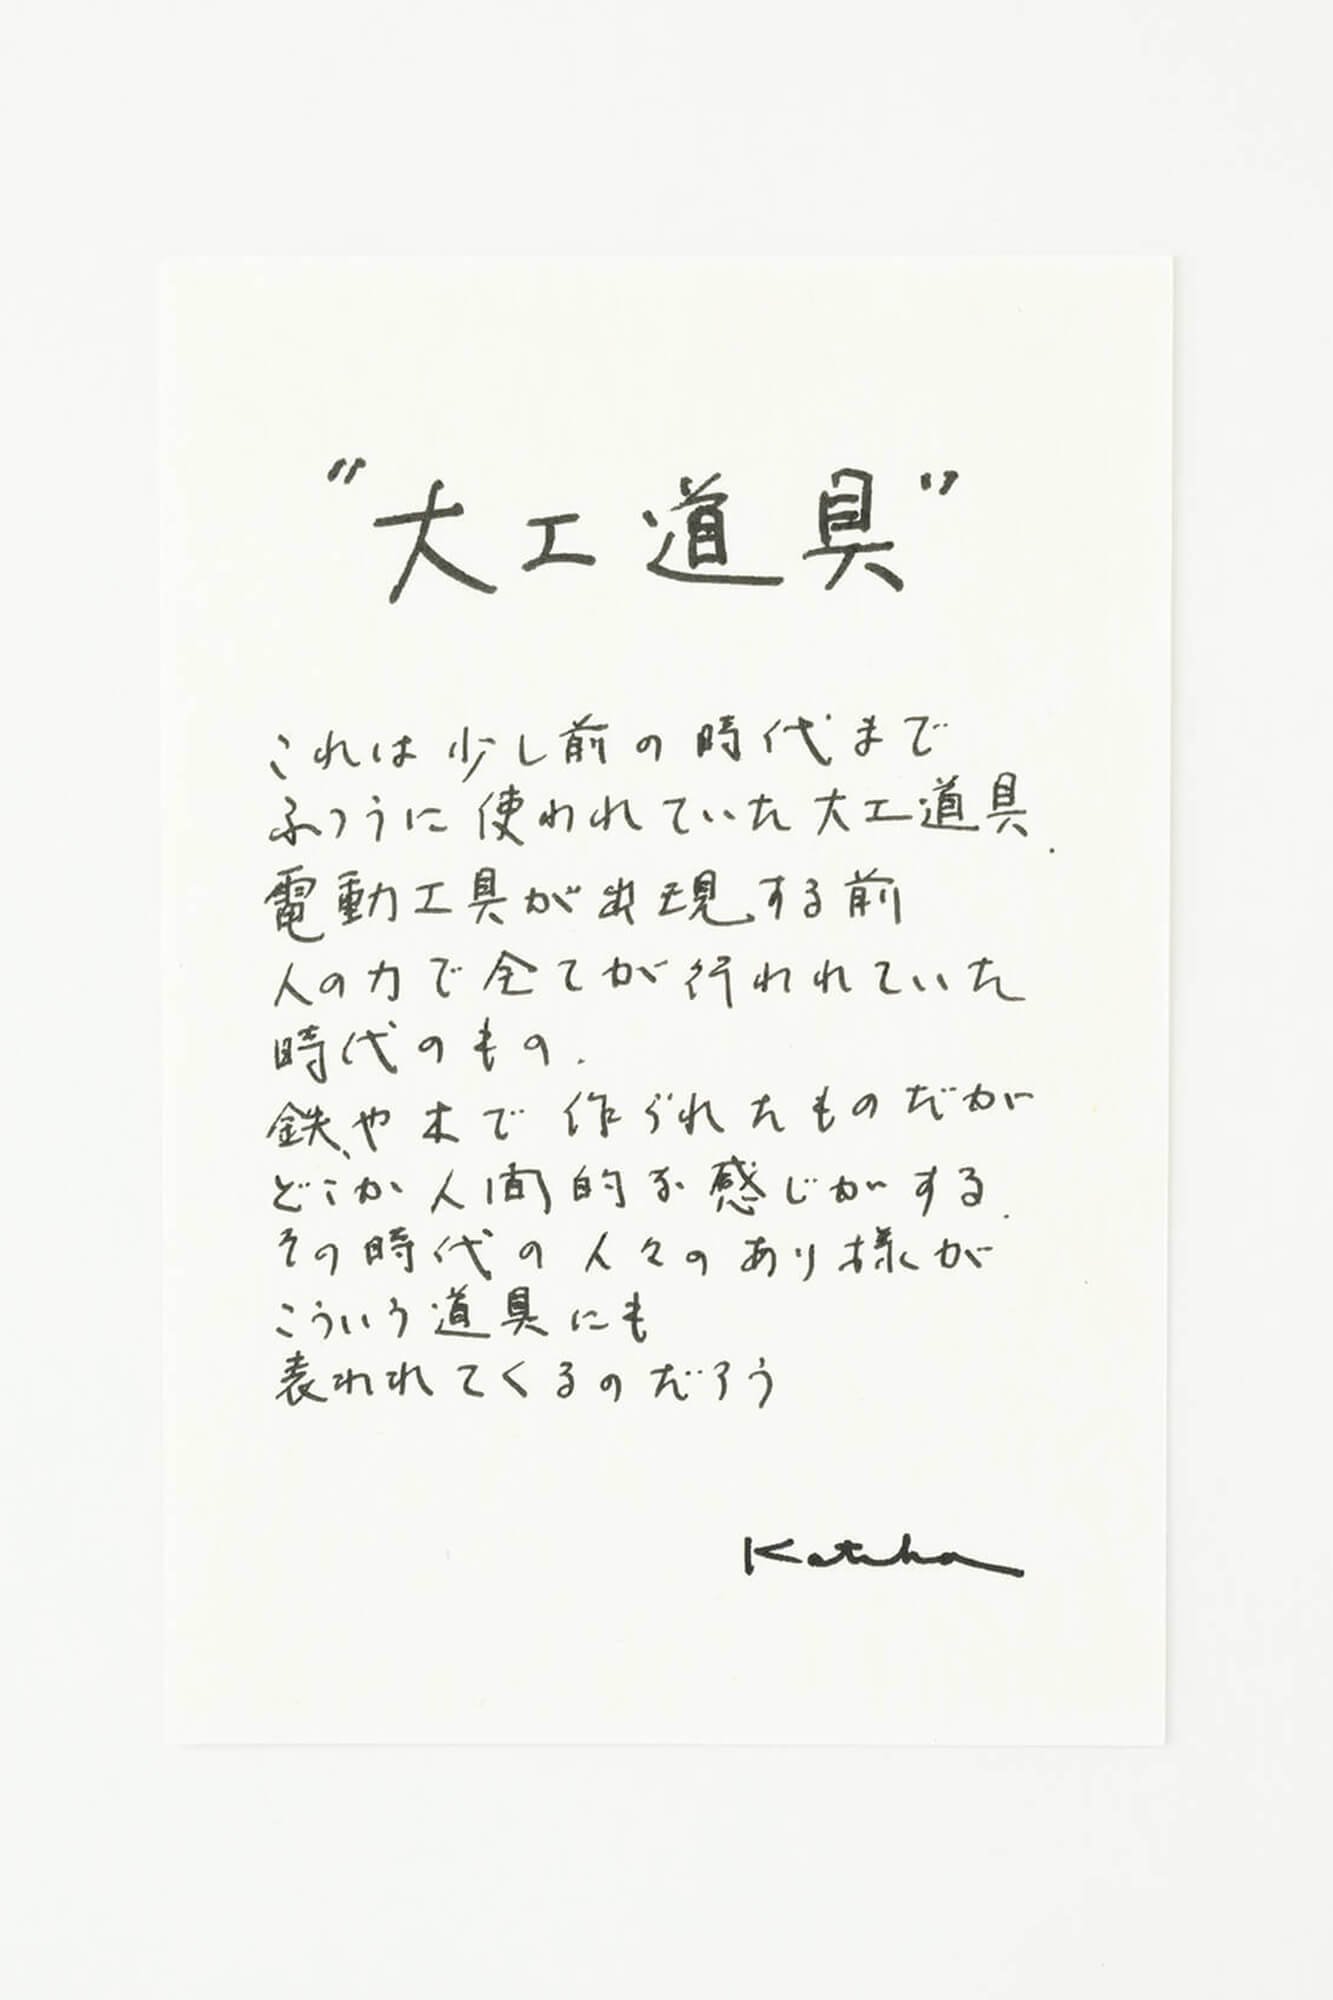 "大工道具"
これは少し前の時代まで
ふつうに使われていた大工道具.
電動工具が出現する前
人の力で全てが行われていた
時代のもの.
鉄や木で作られたものだが
どこか人間的な感じがする.
その時代の人々のあり様が
こういう道具にも
表われてくるのだろう
Katsuha